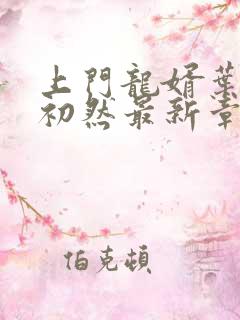 上門龍婿葉
初然最新章
伯克頓